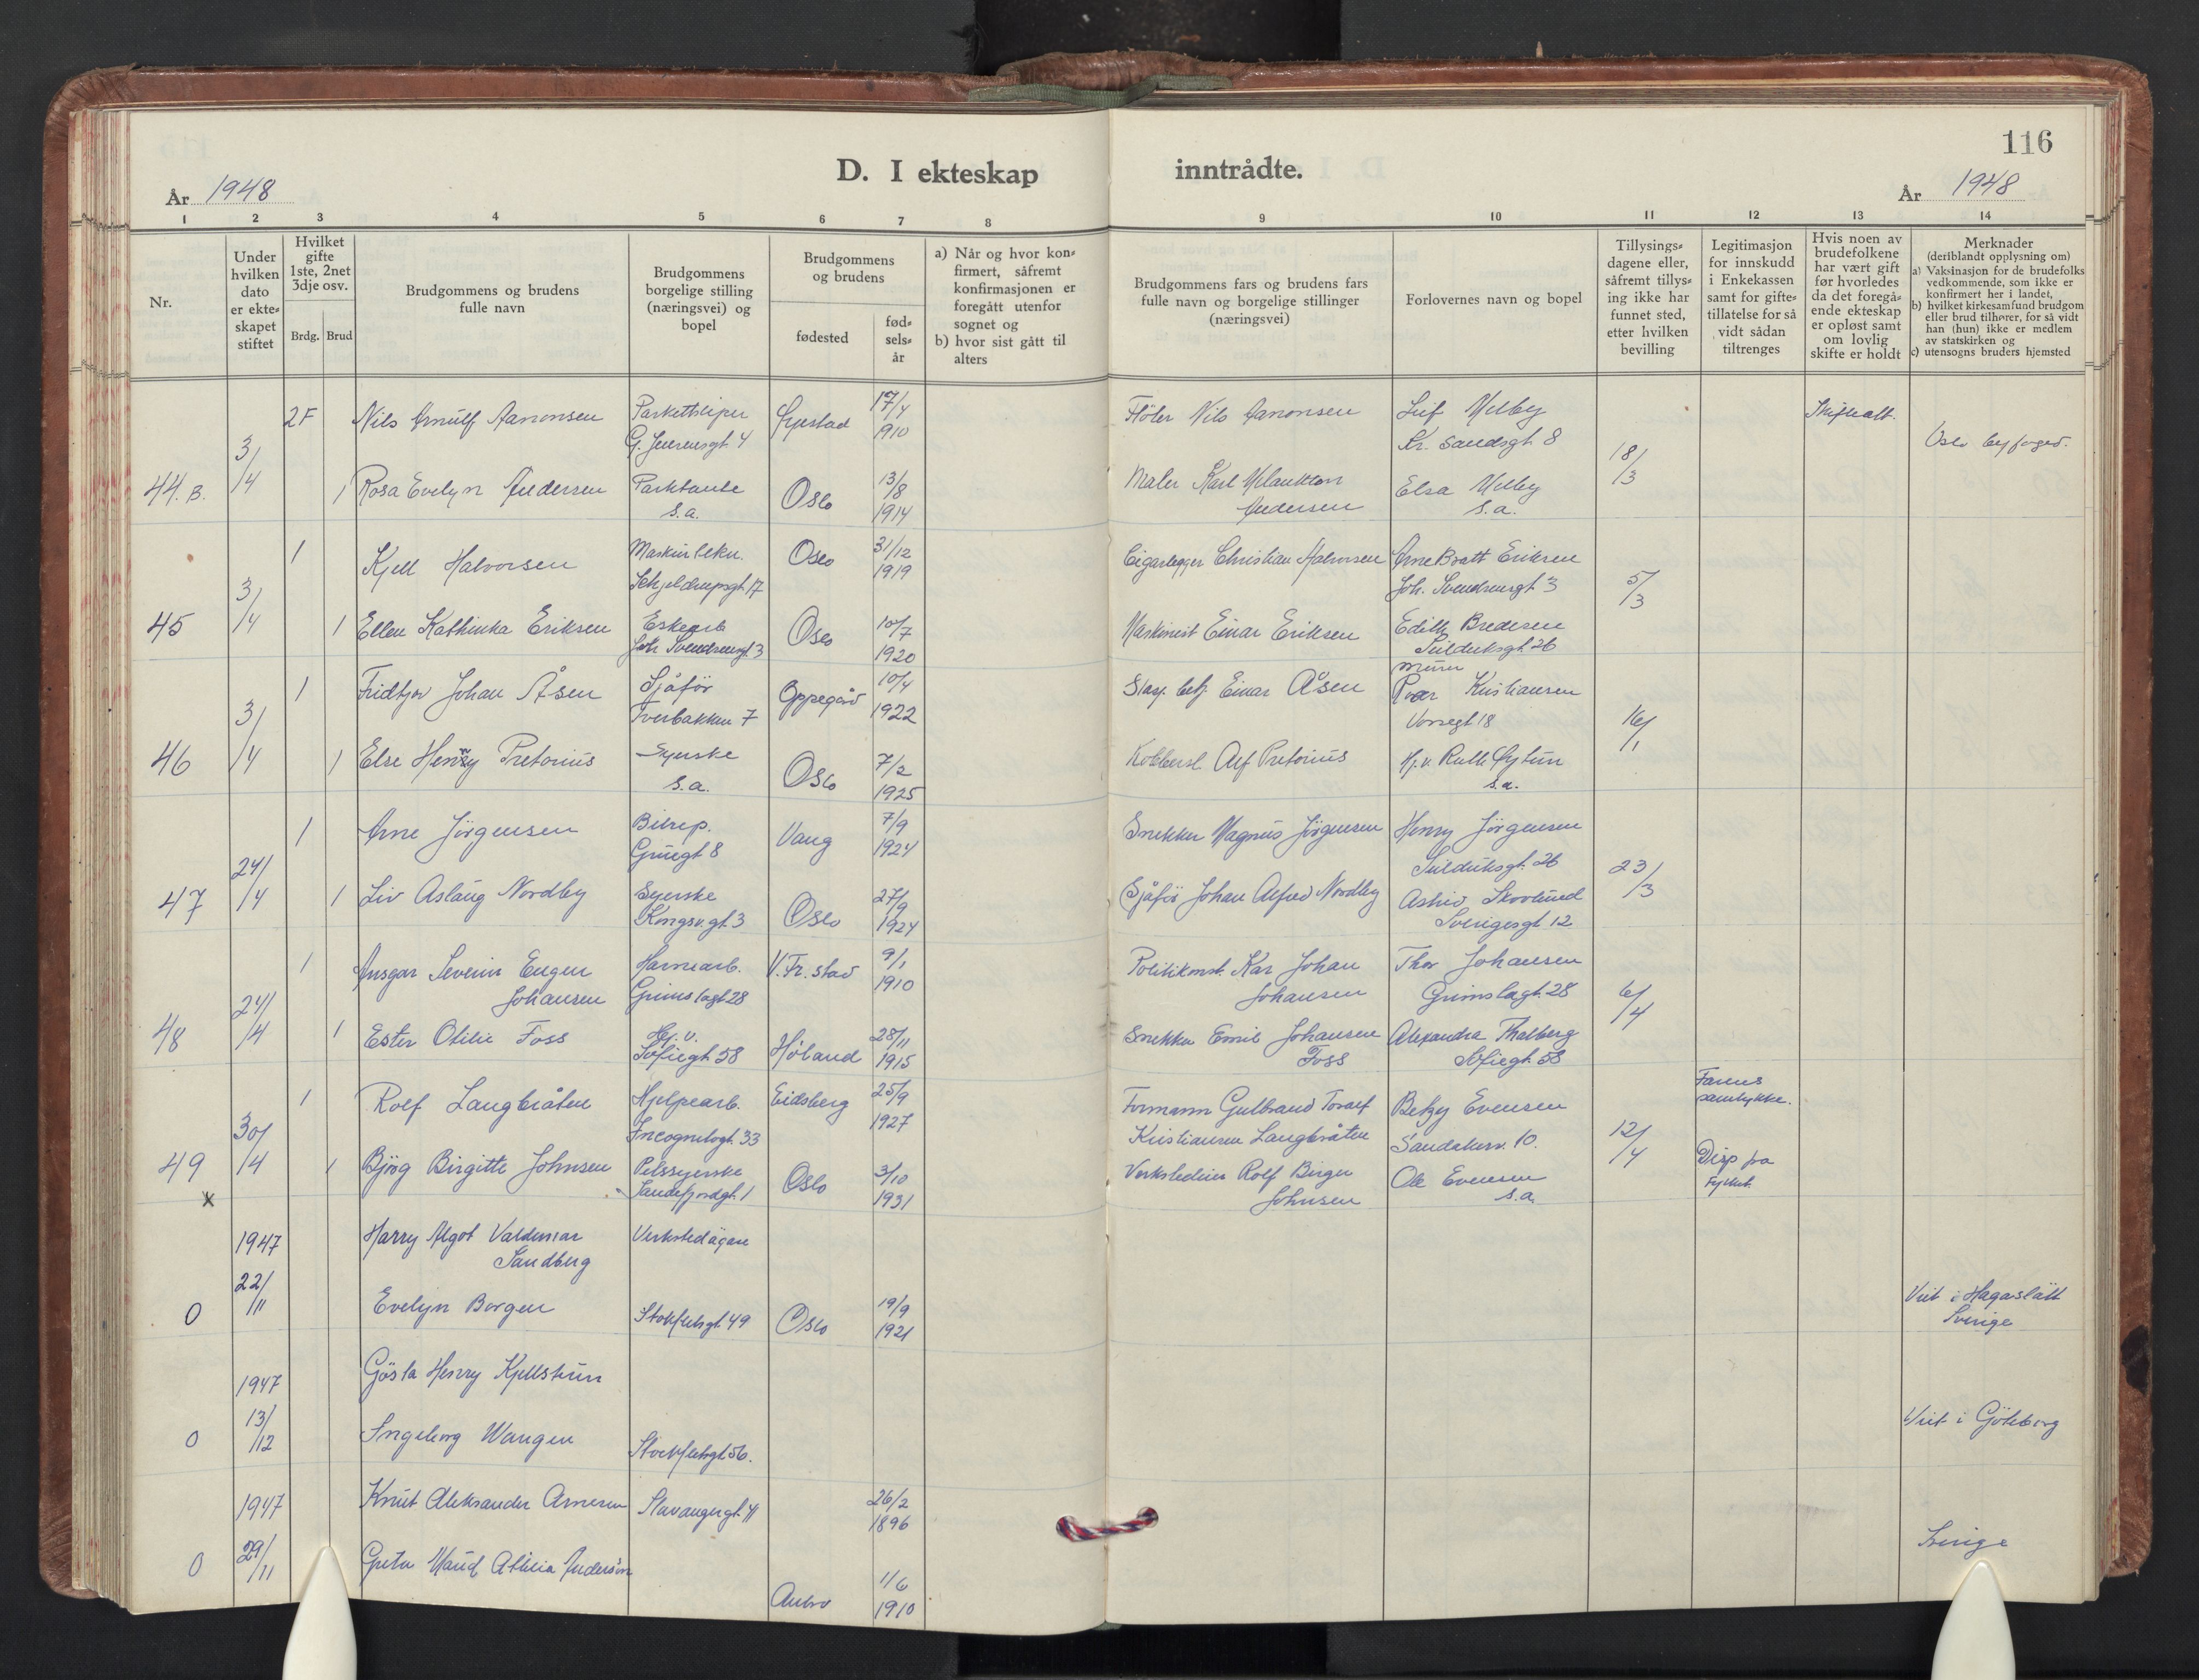 116
D. I ekteskap inntrådte.
År 1948
År 1948
1 2 3 4 5 6 7 8 9 10 11 12 13 14
Nr.
Under hvilken dato er ekte-skapet stiftet
Hvilket gifte 1ste, 2net 3dje osv.
Brdg. Brud
Brudgommens og brudens fulle navn
Brudgommens borgelige stilling (næringsvei) og bopel
Brudgommens og brudens
fødested
fød-sels-år
a) Når og hvor kon-firmert, såfremt konfirmasjonen er foregått utenfor sognet og
b) hvor sist gått til alters
Brudgommens fars og brudens fars fulle navn og borgelige stillinger (næringsvei)
Forlovernes navn og bopel
Tillysings-dagene eller, såfremt tillys-ing ikke har funnet sted, etter hvilken bevilling
Legitimasjon for innskudd i Enkekassen samt for gifte-tillatelse for så vidt sådan tiltrenges
Hvis noen av brudefolkene har vært gift før hvorledes da det foregå-ende ekteskap er opløst samt om lovlig skifte er holdt
Merknader (deriblandt opplysning om)
a) Vaksinasjon for de brudefolks vedkommende, som ikke er konfirmert her i landet,
b) hvilket kirkesamfund brudgom eller brud tilhører, for så vidt han (hun) ikke er medlem av statskirken og
c) utensogns bruders hjemsted
2F Nils Arnulf Aanonsen 17/4 Nils Aanonsen Leif Melby
G. Jensensgt 4 1910 Kr. sandsgt 8 Oslo byfoged.
44.B. 3/4 1 Rosa Evelyn Andersen Oslo 13/8 Maler Karl Melankton Elsa Melby 18/3
s.a. 1914 Andersen s.a.
1 Kjell Halvorsen Oslo 31/12 Cigarlegger Christian Halvorsen Arne Bratt Eriksen
Schjeldrupsgt 17 1919 Joh. Svendsensgt 3
45 3/4 1 Ellen Kathinka Eriksen Eskearb Oslo 10/7 Maskinist Einar Eriksen Edith Bredesen 5/3
Joh Svendsensgt 3 1920 Suldluksgt 26
1 Fridtjov Johan Åsen Sjåfør Oppegård 10/4 Einar Åsen Kristiansen
Tverbakken 7 1922 Vossegt 18
46 3/4 1 Else Henny Pretorius Syerske Oslo 7/2 Alf Pretorius Hj.v. Ruth 16/1
s.a. 1925 s.a.
1 Arne Jörgensen Bilrep. Vang 7/9 Snekker Magnus Jörgensen Henry Jörgensen
Grüegt 8 1924
47 24/4 1 Liv Aslaug Nordby Syerske Oslo 27/9 Sjåfør Johan Alfred Nordby Astrid Skovlund 23/3
Kongsv.gt. 3 1924 Sverigesgt 12
1 Ansgar Severin Eugen Havnearb. V. Fr. stad 9/1 Politikonst. Kar Johan Thor Johansen
Johansen Grimstagt 28 1910 Johansen Grimstagt. 28
48 24/4 1 Ester Otilie Foss Hj. v. Höland 28/11 Snekker Emil Johansen Alexandra Thalberg 6/4
Sofiegt 58 1915 Foss Sofiegt. 58
1 Rolf Langbråten Hjelpearb. Eidsberg 25/9 Formann Gulbrand Toralf Betzy Evensen Farens samtykke.
Incognitogt. 33 1927 Kristiansen Langbråten Sandakerv. 10.
49 30/4 1 Bjørg Birgitte Johnsen Pelssyerske Oslo 3/10 Rolf Birger Ole Evensen 12/4 Disp fra
x Sandefjordgt. 1 1931 Johnsen s.a. Fylket.
1947 Harry Algot Valdemar Verkstedägare
Sandberg
0 22/11 Evelyn Borgen Stokfletsgt 49 Oslo 19/9 1921 Viet i Hagaslätt
Sverige
1947 Gösta Henry Kjellström
0 13/12 Ingeborg Wangen Stockfletsgt 56. Viet i Göteborg
1947 Knut Aleksander Arnesen Stavangergt. 41 26/2 1896
0 29/11 Greta Maud Andersson 1/6 1910 Sverige